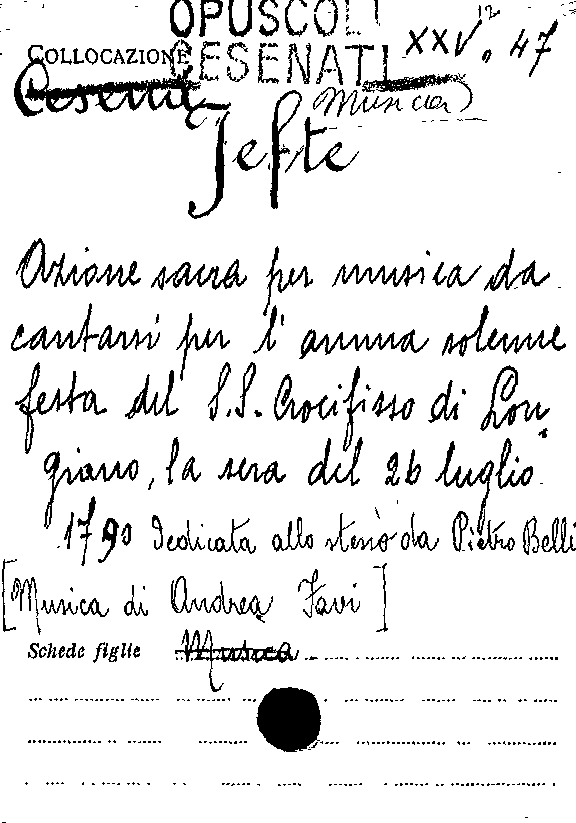 OPUSCOLI
COLLOCAZIONE CESENATI XXV¹². 47
Cesena (Musica)
Jefte
Azione sacra per musica da
cantarsi per l'annua solenne
festa del S.S. Crocifisso di Lon
giano, la sera del 26 luglio
1790 dedicata allo stesso da Pietro Belli
[Musica di Andrea Favi]
Schede figlie Musica